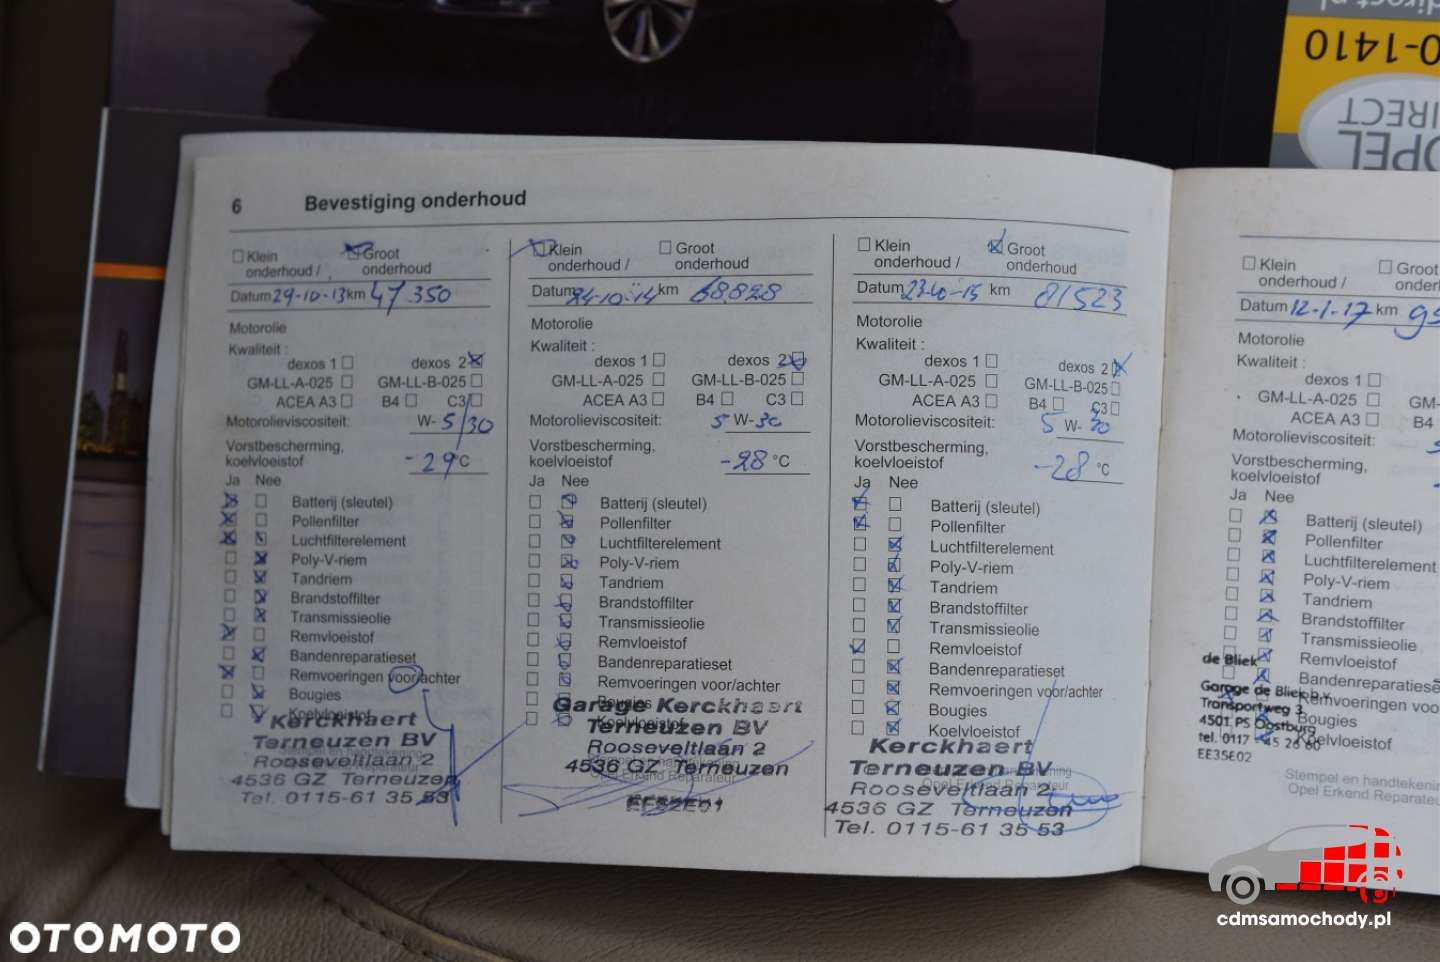 direct.pl
0-1410
OPEL
DIRECT
6 Bevestiging onderhoud
Klein onderhoud / Groot onderhoud
Datum 29-10-13 km 47.350
Motorolie
Kwaliteit :
dexos 1 dexos 2
GM-LL-A-025 GM-LL-B-025
ACEA A3 B4 C3
Motorolieviscositeit: W- 5/30
Vorstbescherming,
koelvloeistof -29 °C
Ja Nee
Batterij (sleutel)
Pollenfilter
Luchtfilterelement
Poly-V-riem
Tandriem
Brandstoffilter
Transmissieolie
Remvloeistof
Bandenreparatieset
Remvoeringen voor/achter
Bougies
Koelvloeistof
Kerckhaert
Terneuzen BV
Rooseveltlaan 2
Stempel en handtekening
4536 GZ Terneuzen
Tel. 0115-61 35 53
Klein onderhoud / Groot onderhoud
Datum 24-10-14 km 68.828
Motorolie
Kwaliteit :
dexos 1 dexos 2
GM-LL-A-025 GM-LL-B-025
ACEA A3 B4 C3
Motorolieviscositeit: 5 W-30
Vorstbescherming,
koelvloeistof -28 °C
Ja Nee
Batterij (sleutel)
Pollenfilter
Luchtfilterelement
Poly-V-riem
Tandriem
Brandstoffilter
Transmissieolie
Remvloeistof
Bandenreparatieset
Remvoeringen voor/achter
Bougies
Garage Kerckhaert
Koelvloeistof
Terneuzen BV
Rooseveltlaan 2
Stempel en handtekening
4536 GZ Terneuzen
Opel Erkend Reparateur
Klein onderhoud / Groot onderhoud
Datum 23-10-15 km 81523
Motorolie
Kwaliteit :
dexos 1 dexos 2
GM-LL-A-025 GM-LL-B-025
ACEA A3 B4 C3
Motorolieviscositeit: 5 W- 30
Vorstbescherming,
koelvloeistof -28 °C
Ja Nee
Batterij (sleutel)
Pollenfilter
Luchtfilterelement
Poly-V-riem
Tandriem
Brandstoffilter
Transmissieolie
Remvloeistof
Bandenreparatieset
Remvoeringen voor/achter
Bougies
Koelvloeistof
Kerckhaert
Terneuzen BV
Opel Erkend Reparateur
Rooseveltlaan 2
4536 GZ Terneuzen
Tel. 0115-61 35 53
Klein onderhoud / Groot
Datum 12-1-17 km 95
Motorolie
Kwaliteit :
dexos 1
GM-LL-A-025 GM-
ACEA A3 B4
Motorolieviscositeit:
Vorstbescherming,
koelvloeistof
Ja Nee
Batterij (sleutel)
Pollenfilter
Luchtfilterelement
Poly-V-riem
Tandriem
Brandstoffilter
Transmissieolie
Remvloeistof
Bandenreparatiese
Remvoeringen voor
Bougies
Koelvloeistof
de Bliek
Garage de Bliek b.v.
Transportweg 3
4501 PS Oostburg
tel. 0117 - 45 26 60
EE35E02
Stempel en handtekening
Opel Erkend Reparateu
OTOMOTO
cdmsamochody.pl